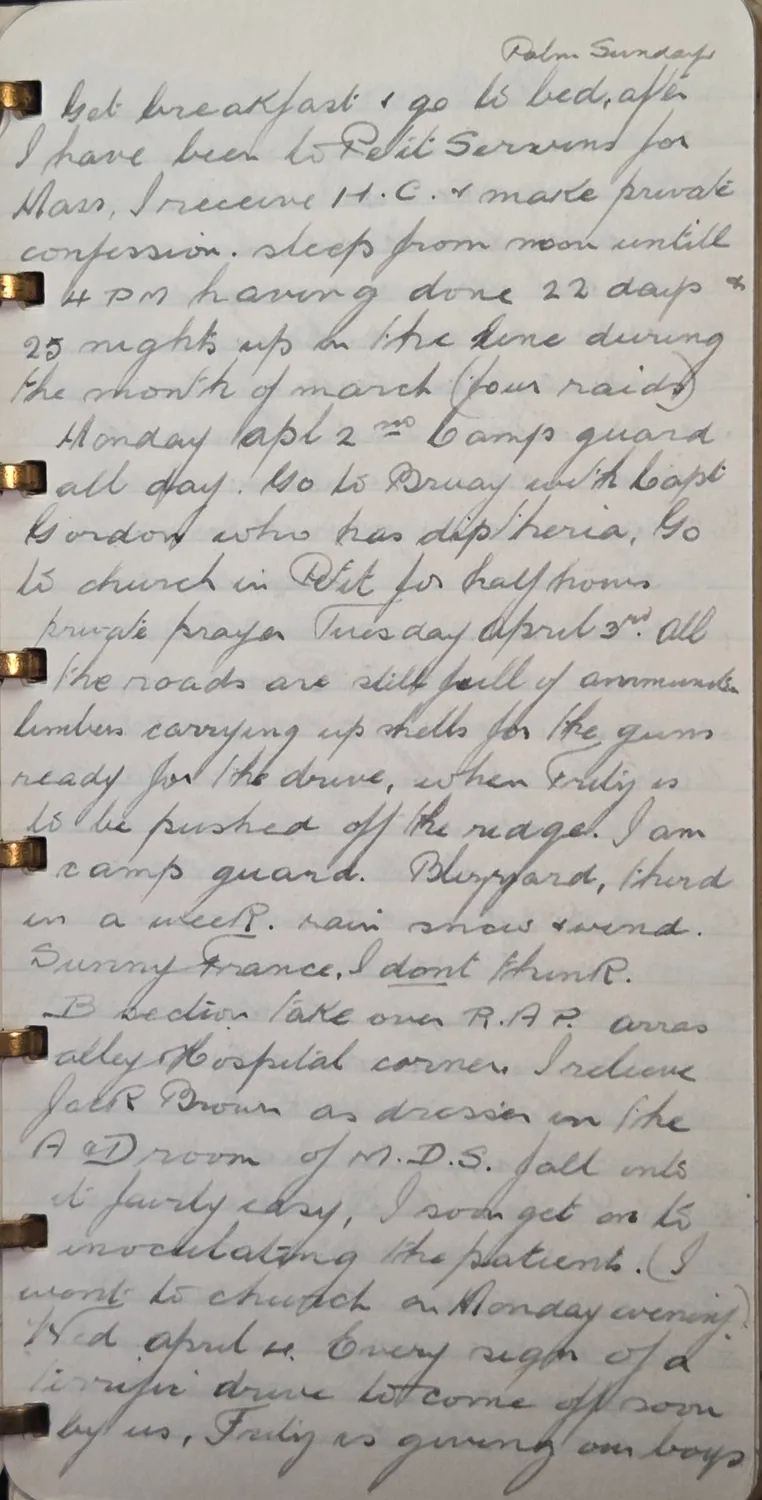 Palm Sunday
Get breakfast & go to bed, after
I have been to Petit Servins for
Mass, I receive H.C. & make private
confession. sleep from noon untill
4 PM having done 22 days &
25 nights up in the line during
the month of march (four raids)
Monday apl 2nd Camp guard
all day. Go to Bruay with Capt
Gordon who has diptheria, Go
to church in Petit for half hours
private prayer Tuesday april 3rd. All
the roads are still full of ammunitn
limbers carrying up shells for the guns
ready for the drive, when Fritz is
to be pushed off the ridge. I am
camp guard. Blizzard, third
in a week. rain snow & wind.
Sunny France, I dont think.
B section take over R.A.P. arras
alley Hospital corner. I relieve
Jack Brown as dresser in the
A & D room of M.D.S. fall into
it fairly easy, I soon get on to
inoculating the patients. (I
went to church on Monday evening)
Wed april 4. Every sign of a
terrific drive to come off soon
by us, Fritz is giving our boys